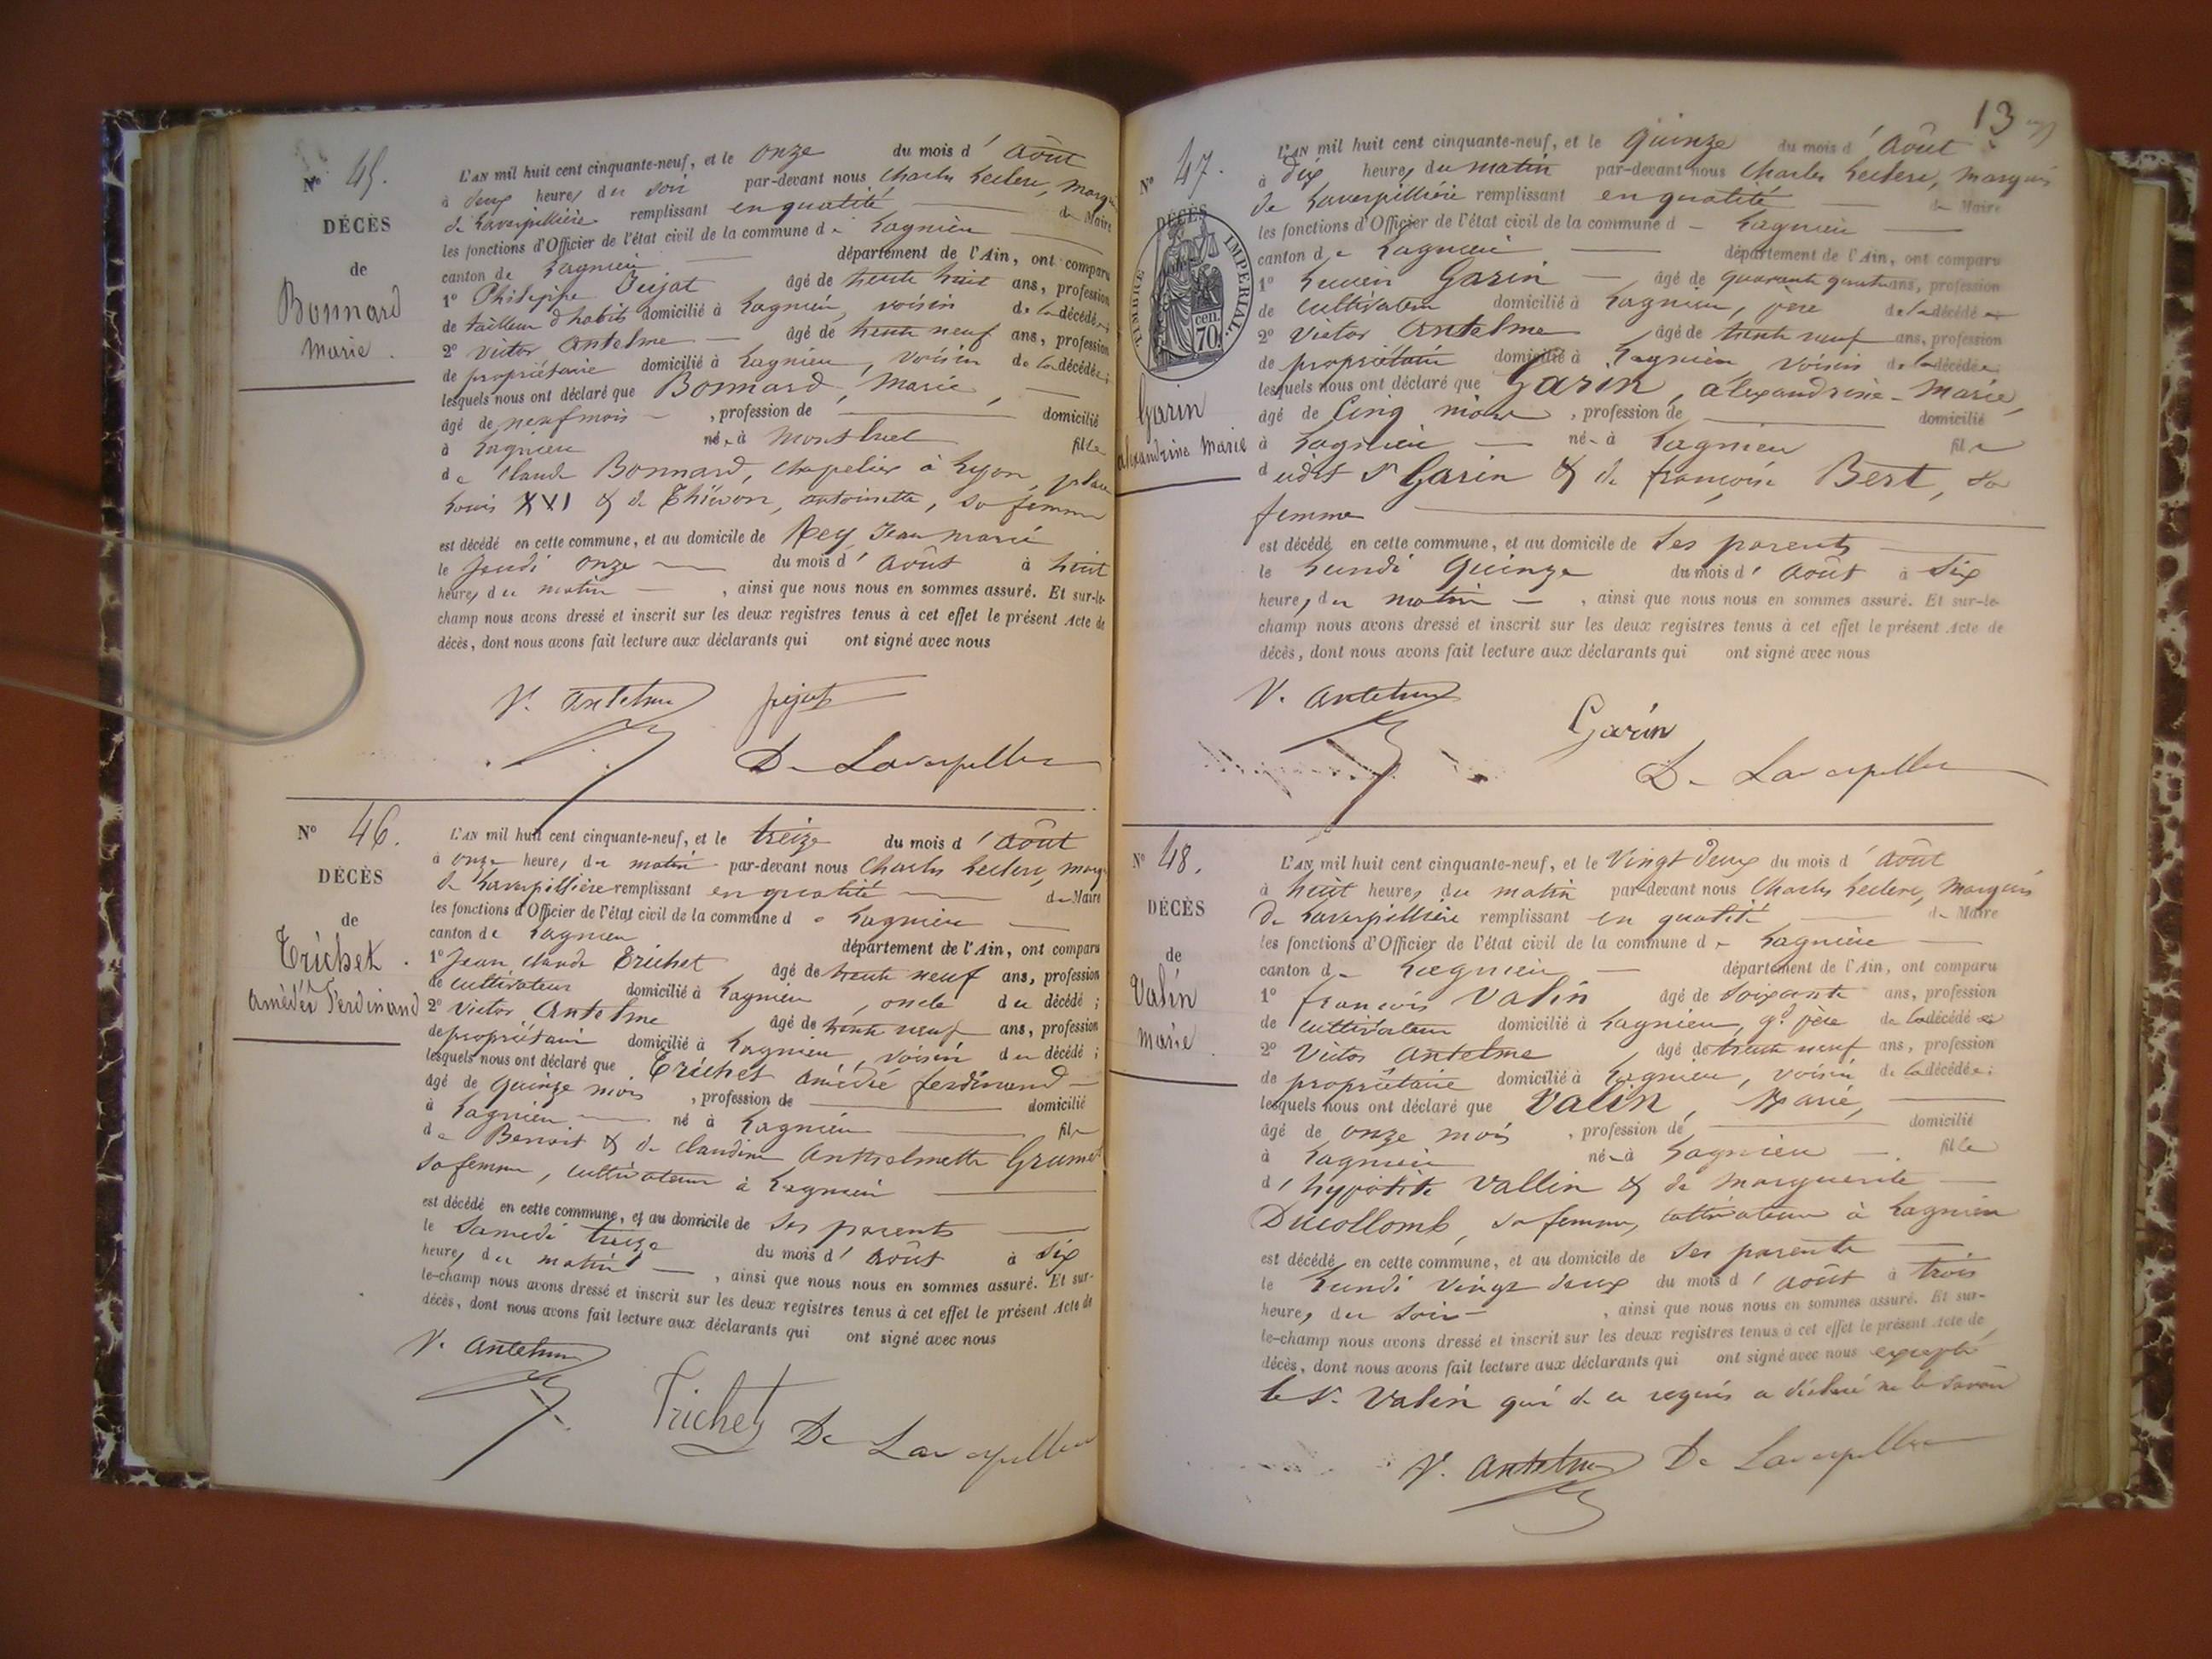 N° 45.
DÉCÈS
de
Bonnard
Marie.
L'AN mil huit cent cinquante-neuf, et le onze du mois d'Août
à deux heures du soir par-devant nous Charles Leclerc, Marqu
de Laverpillière remplissant en qualité de Maire
les fonctions d'Officier de l'état civil de la commune de Lagnieu
canton de Lagnieu département de l'Ain, ont comparu
1° Philippe Jujat âgé de trente huit ans, profession
de tailleur d'habits domicilié à Lagnieu, voisin de la décédée;
2° Victor Antelme âgé de trente neuf ans, profession
de propriétaire domicilié à Lagnieu, voisin de la décédée;
lesquels nous ont déclaré que Bonnard, Marie,
âgé de neuf mois, profession de domicilié
à Lagnieu née à Montluel fille
de Claude Bonnard, chapelier à Lyon, place
Louis XVI & de Thévon, antoinette, sa femme
est décédé en cette commune, et au domicile de Rey Jean Marie
le Jeudi onze du mois d'Août à huit
heures du matin, ainsi que nous nous en sommes assuré. Et sur-le-
champ nous avons dressé et inscrit sur les deux registres tenus à cet effet le présent Acte de
décès, dont nous avons fait lecture aux déclarants qui ont signé avec nous
V. Antelme jujat
De Laverpillière
N° 46.
DÉCÈS
de
Trichet
Amédée Ferdinand
L'AN mil huit cent cinquante-neuf, et le treize du mois d'Août
à onze heures du matin par-devant nous Charles Leclerc, marq
de Laverpillière remplissant en qualité de Maire
les fonctions d'Officier de l'état civil de la commune de Lagnieu
canton de Lagnieu département de l'Ain, ont comparu
1° Jean Claude Trichet âgé de trente neuf ans, profession
de cultivateur domicilié à Lagnieu, oncle du décédé;
2° Victor Antelme âgé de trente neuf ans, profession
de propriétaire domicilié à Lagnieu, voisin du décédé;
lesquels nous ont déclaré que Trichet Amédée ferdinand
âgé de quinze mois, profession de domicilié
à Lagnieu né à Lagnieu fils
de Benoit & de Claudine Anthelmette Grumet
sa femme, cultivateurs à Lagnieu
est décédé en cette commune, et au domicile de ses parents
le Samedi treize du mois d'Août à Six
heures du matin, ainsi que nous nous en sommes assuré. Et sur-
le-champ nous avons dressé et inscrit sur les deux registres tenus à cet effet le présent Acte de
décès, dont nous avons fait lecture aux déclarants qui ont signé avec nous
V. Antelme
Trichet De Laverpillière
13
N° 47.
DÉCÈS
TIMBRE IMPERIAL
70 cen.
Garin
Alexandrine Marie
L'AN mil huit cent cinquante-neuf, et le Quinze du mois d'Août
à dix heures du matin par-devant nous Charles Leclerc, Marquis
de Laverpillière remplissant en qualité de Maire
les fonctions d'Officier de l'état civil de la commune de Lagnieu
canton de Lagnieu département de l'Ain, ont comparu
1° Lucien Garin âgé de quarante quatre ans, profession
de cultivateur domicilié à Lagnieu, père de la décédée
2° Victor Antelme âgé de trente neuf ans, profession
de propriétaire domicilié à Lagnieu voisin de la décédée
lesquels nous ont déclaré que Garin, alexandrine-Marie,
âgé de Cinq mois, profession de domicilié
à Lagnieu née à Lagnieu fille
dudit Sr Garin & de françoise Bert, sa
femme
est décédé en cette commune, et au domicile de ses parents
le Lundi Quinze du mois d'Août à Six
heures du matin, ainsi que nous nous en sommes assuré. Et sur-le-
champ nous avons dressé et inscrit sur les deux registres tenus à cet effet le présent Acte de
décès, dont nous avons fait lecture aux déclarants qui ont signé avec nous
V. Antelme
Garin
De Laverpillière
N° 48.
DÉCÈS
de
Valin
Marie
L'AN mil huit cent cinquante-neuf, et le Vingt deux du mois d'Août
à huit heures du matin par-devant nous Charles Leclerc, Marquis
de Laverpillière remplissant en qualité de Maire
les fonctions d'Officier de l'état civil de la commune de Lagnieu
canton de Lagnieu département de l'Ain, ont comparu
1° françois Valin âgé de soixante ans, profession
de cultivateur domicilié à Lagnieu, gd père de la décédée
2° Victor Antelme âgé de trente neuf ans, profession
de propriétaire domicilié à Lagnieu, voisin de la décédée;
lesquels nous ont déclaré que Valin, Marie,
âgé de onze mois, profession de domicilié
à Lagnieu née à Lagnieu fille
d'hypolite Vallin & de Marguerite
Ducollomb, sa femme, cultivateurs à Lagnieu
est décédé en cette commune, et au domicile de ses parents
le Lundi Vingt deux du mois d'Août à trois
heures du soir, ainsi que nous nous en sommes assuré. Et sur-
le-champ nous avons dressé et inscrit sur les deux registres tenus à cet effet le présent Acte de
décès, dont nous avons fait lecture aux déclarants qui ont signé avec nous excepté
le Sr Valin qui de ce requis a déclaré ne le savoir
V. Antelme De Laverpillière